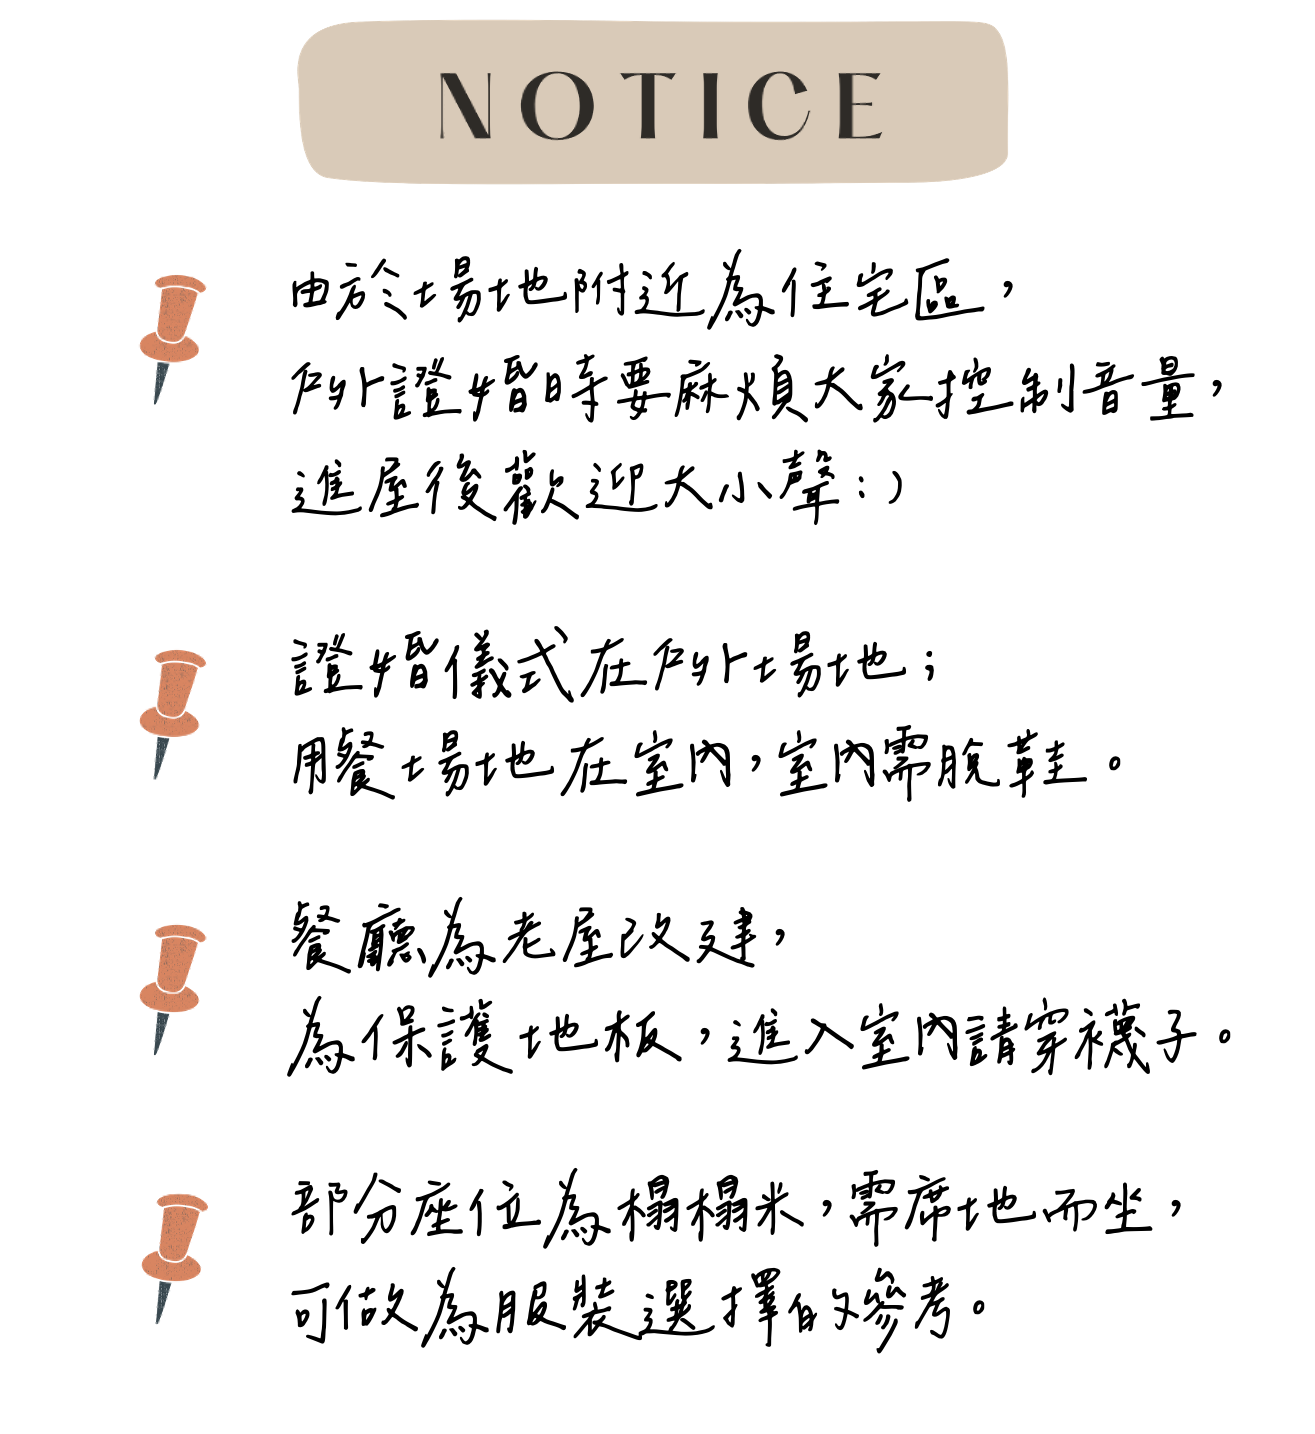 NOTICE
由於場地附近為住宅區，
戶外證婚時要麻煩大家控制音量，
進屋後歡迎大小聲：）
證婚儀式在戶外場地；
用餐場地在室內，室內需脫鞋。
餐廳為老屋改建，
為保護地板，進入室內請穿襪子。
部分座位為榻榻米，需席地而坐，
可做為服裝選擇的參考。